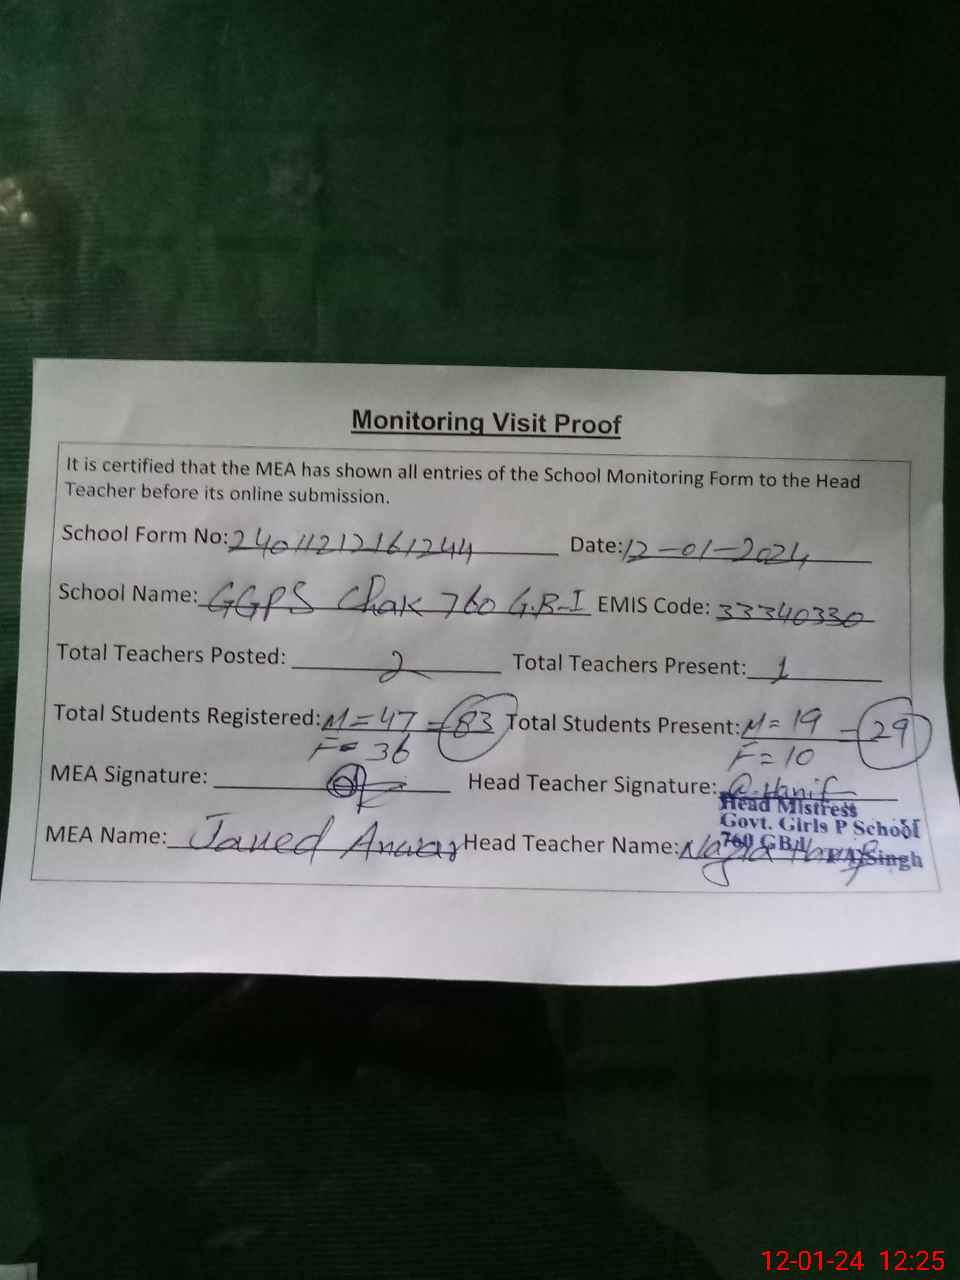 Monitoring Visit Proof
It is certified that the MEA has shown all entries of the School Monitoring Form to the Head
Teacher before its online submission.
School Form No: 24011212161244 Date: 12-01-2024
School Name: GGPS Chak 760 G.B-I EMIS Code: 33340330
Total Teachers Posted: 2 Total Teachers Present: 1
Total Students Registered: M = 47 = 83 Total Students Present: M = 19 - 29
F = 36 F = 10
MEA Signature: Head Teacher Signature:
Head Mistress
Govt. Girls P School
MEA Name: Javed Anwar Head Teacher Name: Nazia
760 GB/I T.T.Singh
12-01-24 12:25